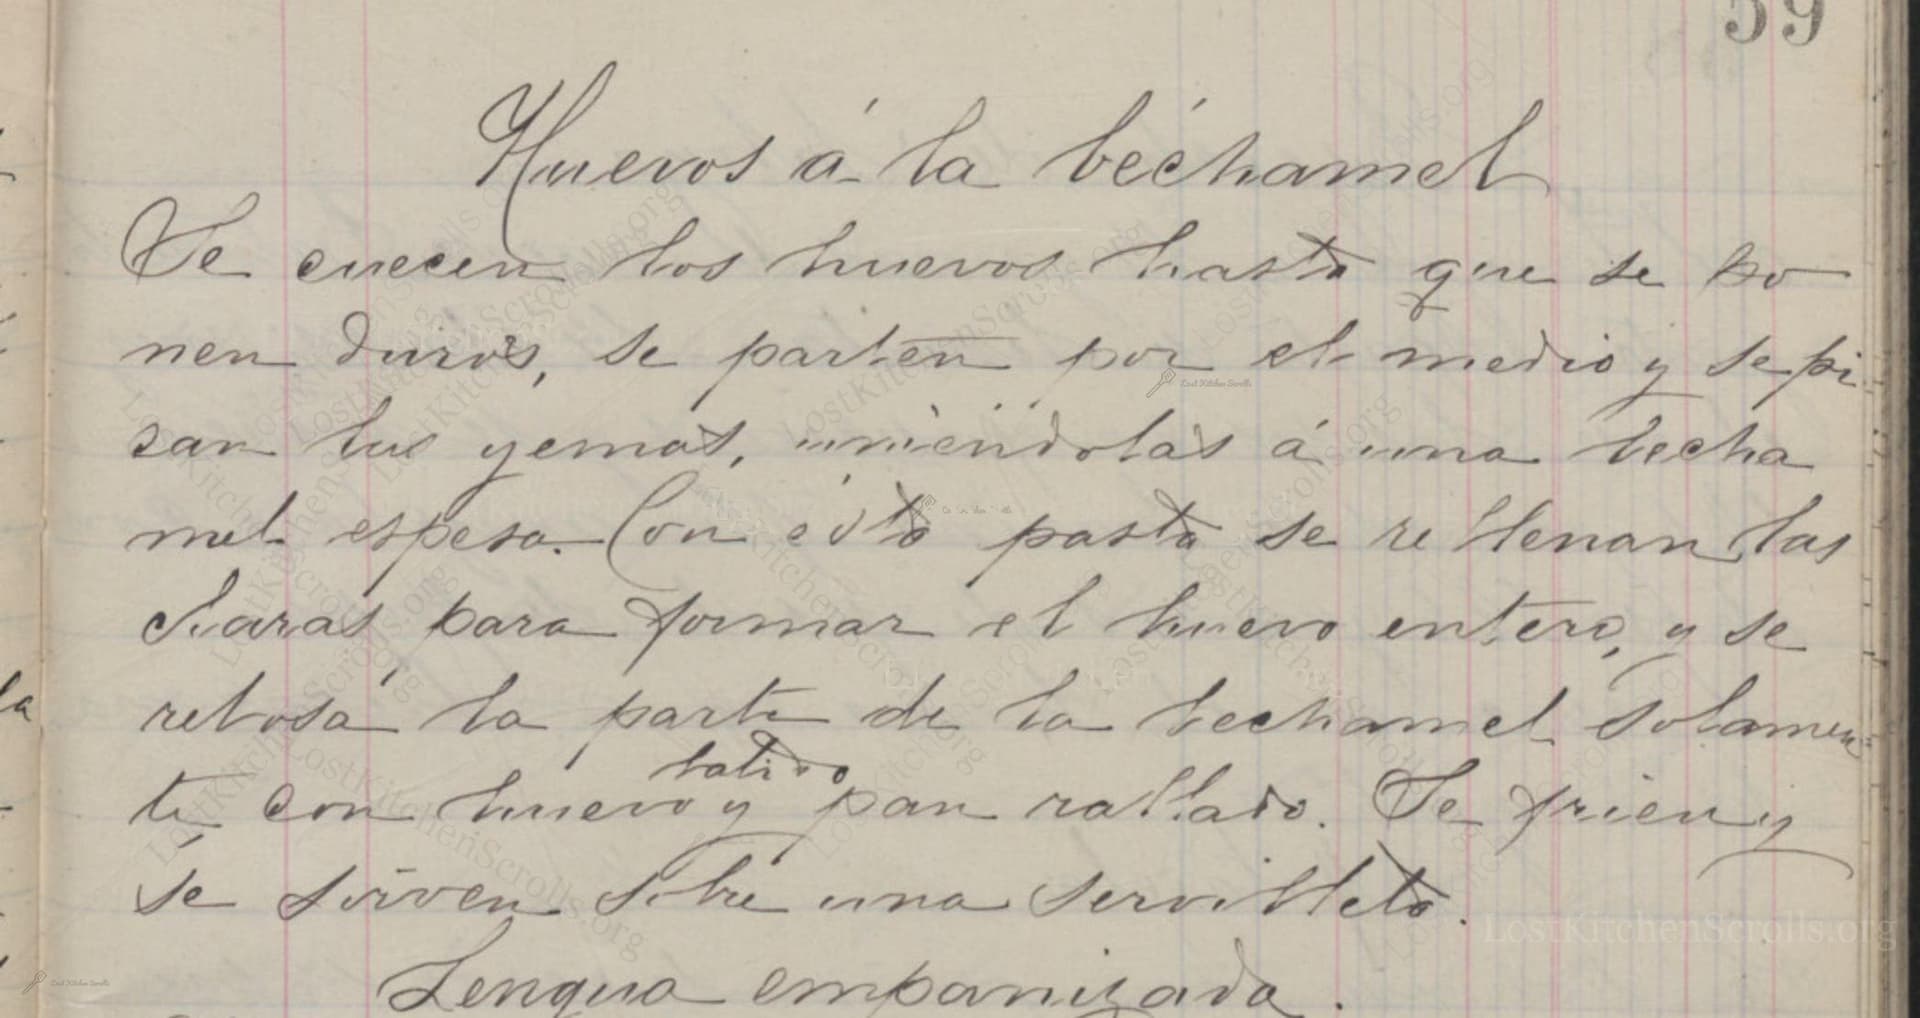 59
Huevos á la béchamel
Se cuecen los huevos hasta que se po
nen duros, se parten por el medio y se pi
san las yemas, uniéndolas á una becha
mel espesa. Con ésta pasta se rellenan las
claras para formar el huevo entero, y se
rebosa la parte de la bechamel solamen-
batido
te con huevo y pan rallado. Se frien y
se sirven sobre una servilleta.
LostKitchenScrolls.org
Lengua empanizada.